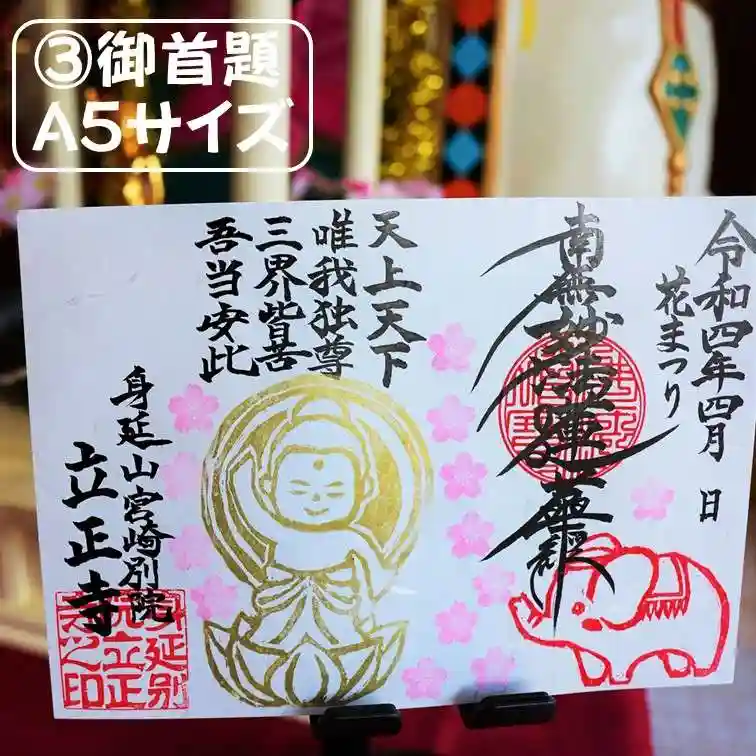 ③御首題
A5サイズ
令和四年四月 日
花まつり
南無妙法蓮華経
天上天下
唯我独尊
三界皆苦
吾当安此
身延山宮崎別院
立正寺